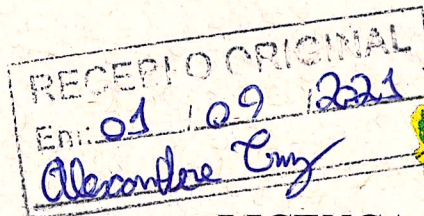 RECEBI O ORIGINAL
Em: 01 / 09 / 2021
Alexandre Cruz